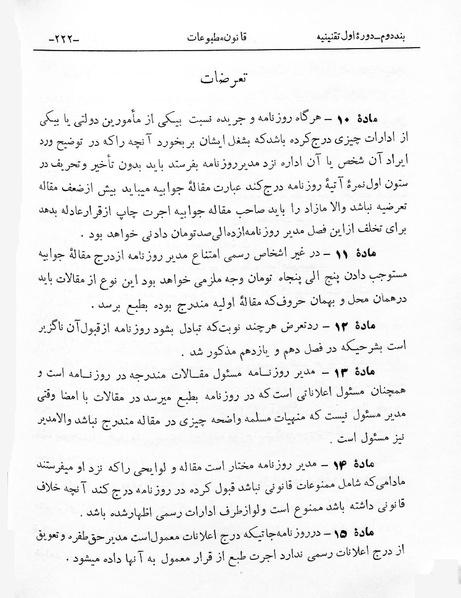 بند دوم ــ دورهٔ اول تقنینیه
قانون مطبوعات
ــ ۲۲۲ــ
تعرضات
مادهٔ ۱۰ ــ هرگاه روزنامه و جریده نسبت بیکی از مأمورین دولتی یا بیکی
از ادارات چیزی درج کرده باشد که بشغل ایشان بربخورد آنچه راکه در توضیح ورد
ایراد آن شخص یا آن اداره نزد مدیر روزنامه بفرستد باید بدون تأخیر وتحریف در
ستون اول نمرهٔ آتیهٔ روزنامه درج کند عبارت مقالهٔ جوابیه میباید بیش ازضعف مقاله
تعرضیه نباشد والا مازاد را باید صاحب مقاله جوابیه اجرت چاپ ازقرارعادله بدهد
برای تخلف ازاین فصل مدیر روزنامه ازده الی صدتومان دادنی خواهد بود .
مادهٔ ۱۱ ــ در غیر اشخاص رسمی امتناع مدیر روزنامه ازدرج مقالهٔ جوابیه
مستوجب دادن پنج الی پنجاه تومان وجه ملزمی خواهد بود این نوع از مقالات باید
درهمان محل و بهمان حروف که مقالهٔ اولیه مندرج بوده بطبع برسد .
مادهٔ ۱۲ ــ ردتعرض هرچند نوبت که تبادل بشود روزنامه ازقبول آن ناگزیر
است بشرحیکه در فصل دهم و یازدهم مذکور شد .
مادهٔ ۱۳ ــ مدیر روزنـامه مسئول مقـالات مندرجه در روزنـامه است و
همچنان مسئول اعلاناتی است که در روزنامه بطبع میرسد در مقالات با امضا وقتی
مدیر مسئول نیست که منهیات مسلمه واضحه چیزی در مقاله مندرج نباشد والامدیر
نیز مسئول است .
مادهٔ ۱۴ ــ مدیر روزنامه مختار است مقاله و لوایحی راکه نزد او میفرستند
مادامی که شامل ممنوعات قانونی نباشد قبول کرده در روزنامه درج کند آنچه خلاف
قانونی داشته باشد ممنوع است ولوازطرف ادارات رسمی اظهارشده باشد .
مادهٔ ۱۵ ــ درروزنامه جاتیکه درج اعلانات معمول است مدیر حق طفره وتعویق
از درج اعلانات رسمی ندارد اجرت طبع از قرار معمول به آنها داده میشود .